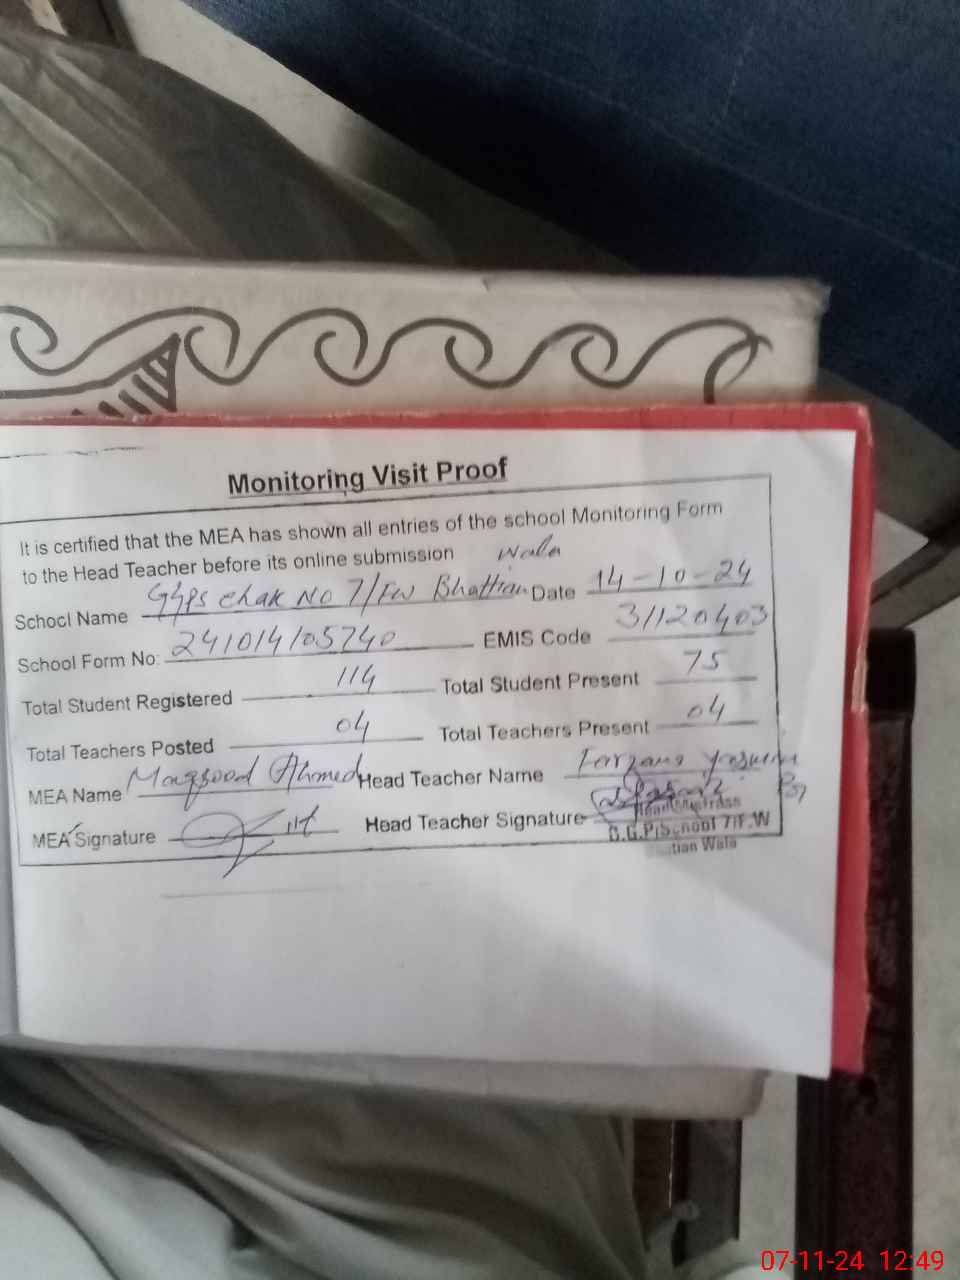 Monitoring Visit Proof
It is certified that the MEA has shown all entries of the school Monitoring Form
to the Head Teacher before its online submission
School Name GGPS chak No 7/FW Bhattian wala Date 14-10-24
School Form No: 241014105740 EMIS Code 31120403
Total Student Registered 114 Total Student Present 75
Total Teachers Posted 04 Total Teachers Present 04
MEA Name Maqsood Ahmed Head Teacher Name Farzana Yasmin
MEA Signature Head Teacher Signature
Head Mistress
G.G.P/School 7/F.W
tian Wala
07-11-24 12:49